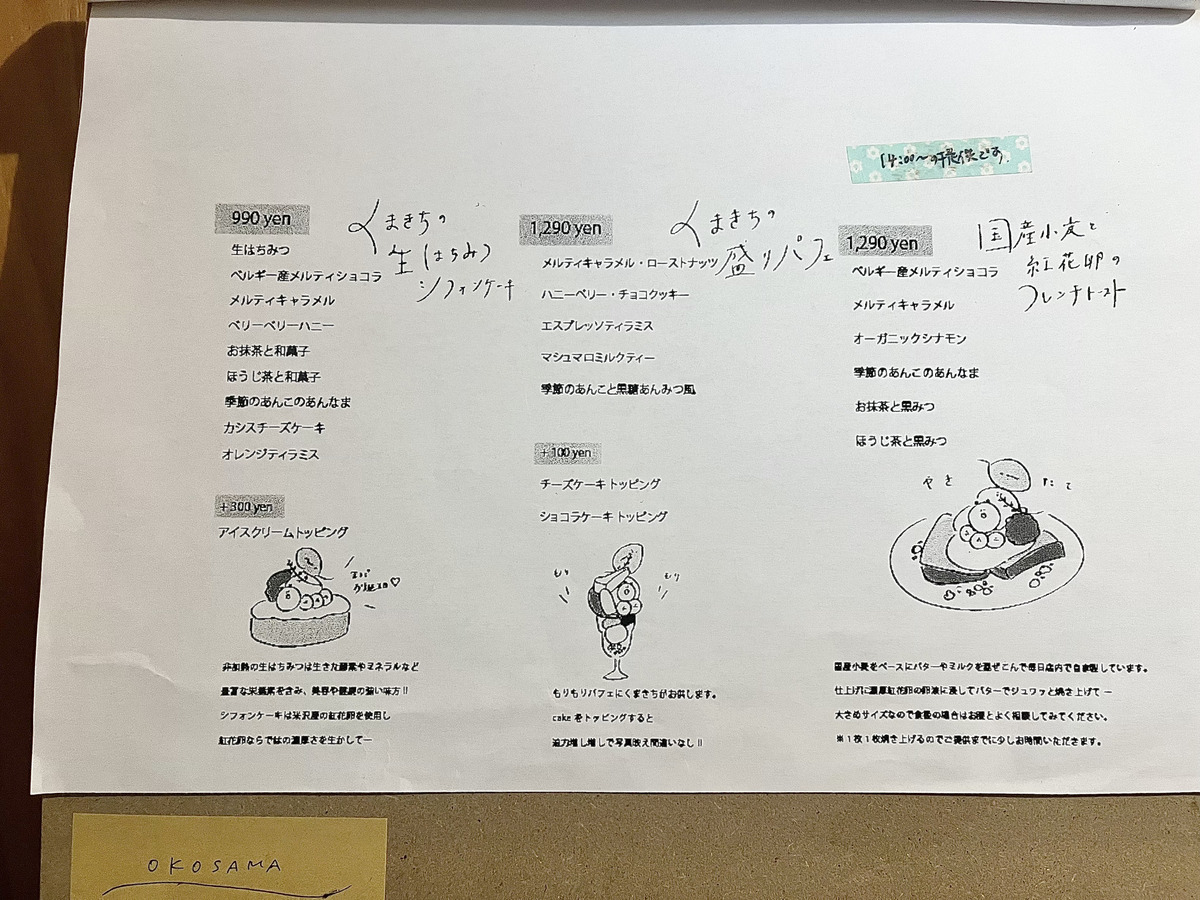 14:00〜の提供です.
990 yen
くまきちの
生はちみつ
シフォンケーキ
生はちみつ
ベルギー産メルティショコラ
メルティキャラメル
ベリーベリーハニー
お抹茶と和菓子
ほうじ茶と和菓子
季節のあんこのあんなま
カシスチーズケーキ
オレンジティラミス
+300 yen
アイスクリームトッピング
非加熱の生はちみつは生きた酵素やミネラルなど
豊富な栄養素を含み、美容や健康の強い味方!!
シフォンケーキは米沢産の紅花卵を使用し
紅花卵ならではの濃厚さを生かして―
1,290 yen
くまきちの
盛りパフェ
メルティキャラメル・ローストナッツ
ハニーベリー・チョコクッキー
エスプレッソティラミス
マシュマロミルクティー
季節のあんこと黒糖あんみつ風
+100 yen
チーズケーキトッピング
ショコラケーキトッピング
もり
もり
もりもりパフェにくまきちがお供します。
cakeをトッピングすると
迫力増し増しで写真映え間違いなし!!
1,290 yen
国産小麦と
紅花卵の
フレンチトースト
ベルギー産メルティショコラ
メルティキャラメル
オーガニックシナモン
季節のあんこのあんなま
お抹茶と黒みつ
ほうじ茶と黒みつ
やき
たて
国産小麦をベースにバターやミルクを混ぜこんで毎日店内で自家製しています。
仕上げに濃厚紅花卵の卵液に浸してバターでジュワっと焼き上げて―
大きめサイズなので食後の場合はお腹とよく相談してみてください。
※1枚1枚焼き上げるのでご提供までに少しお時間いただきます。
OKOSAMA